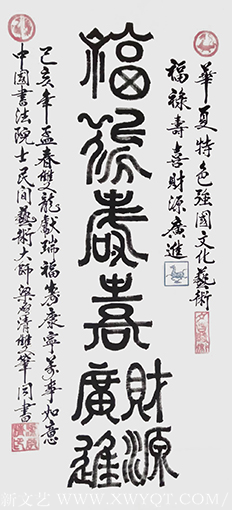 華夏特色強國文化藝術
福祿壽喜財源廣進
福祿壽喜
財源
廣進
己亥年孟春雙龍獻瑞福壽康寧萬事如意
中國書法院士民間藝術大師梁清雙筆同書
新文艺 WWW.XWYQT.COM/